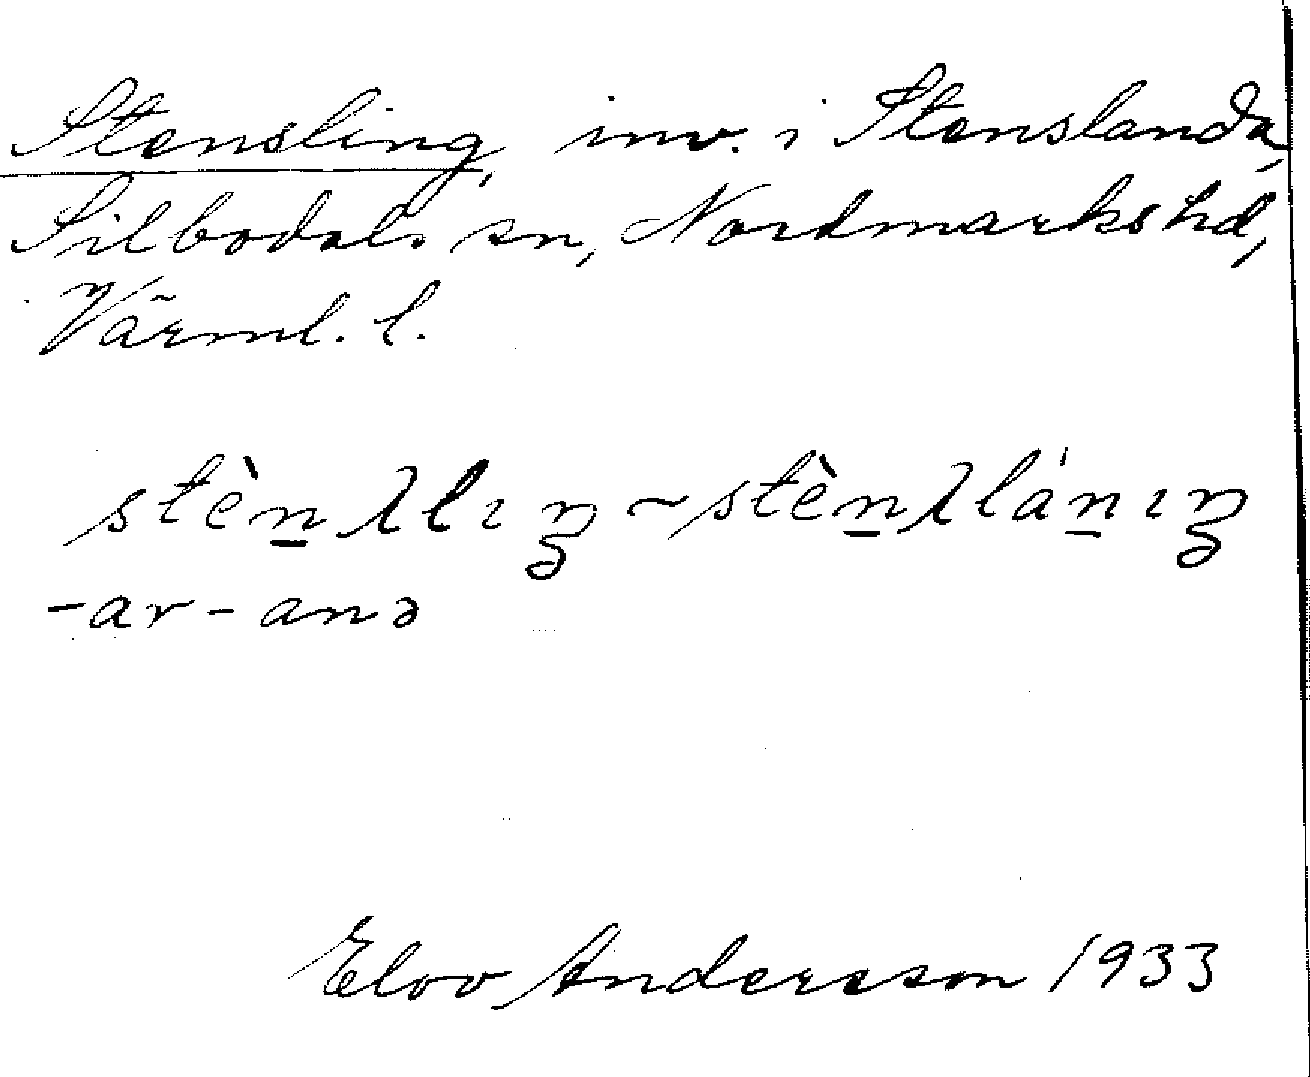 Stensling, inv. i Stenslanda,
Silbodals sn, Nordmarks hd,
Värml. l.
stèn̲ʎlıŋ ~ stèn̲ʎlán̲ıŋ
-ar -anə
Elov Andersson 1933